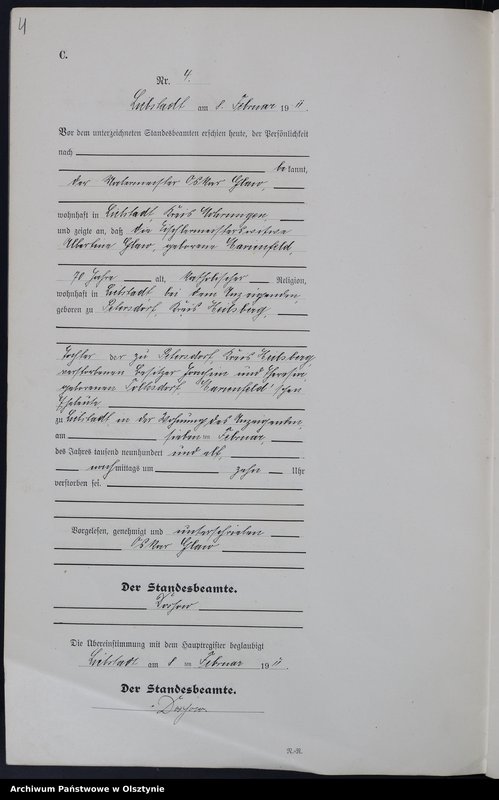 4
C.
Nr. 4.
Liebstadt am 8 Februar 19 11.
Vor dem unterzeichneten Standesbeamten erschien heute, der Persönlichkeit
nach
bekannt,
der Malermeister Oskar Glaw,
wohnhaft in Liebstadt, Kreis Mohrungen,
und zeigte an, daß die Tischlermeisterswitwe
Albertine Glaw, geborene Marienfeld,
70 Jahre alt, katholischer Religion,
wohnhaft in Liebstadt bei dem Anzeigenden,
geboren zu Petersdorf, Kreis Heilsberg,
Tochter der zu Petersdorf, Kreis Heilsberg,
verstorbenen Besitzer Joachim und Theresia,
geborenen Marienfeld'schen
Eheleute
zu Liebstadt, in der Wohnung des Anzeigenden,
am sieben ten Februar,
des Jahres tausend neunhundert und elf,
nachmittags um zehn Uhr
verstorben sei.
Vorgelesen, genehmigt und unterschrieben
Oskar Glaw
Der Standesbeamte.
Die Übereinstimmung mit dem Hauptregister beglaubigt
Liebstadt am 8 ten Februar 19 11.
Der Standesbeamte.
N.-R.
Archiwum Państwowe w Olsztynie